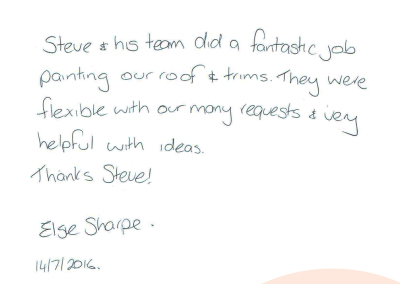 Steve & his team did a fantastic job
painting our roof & trims. They were
flexible with our many requests & very
helpful with ideas.
Thanks Steve!
Else Sharpe.
14/7/2016.